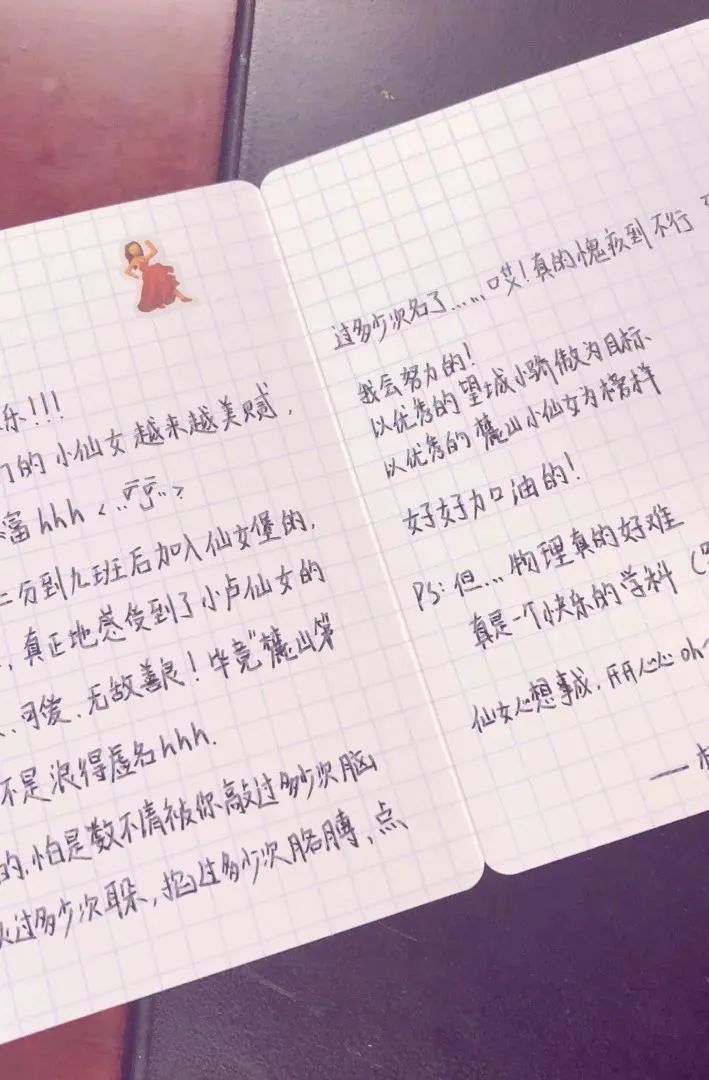 乐!!!
的小仙女越来越美贼,
富hhh
分到九班后加入仙女堡的,
,真正地感受到了小卢仙女的
、可爱、无敌善良!毕竟"麓山第
不是浪得虚名hhh.
的,怕是数不清被你敲过多少次脑
过多少次躲,掐过多少次胳膊,点
过多少次名了......哎!真的愧疚到不行
我会努力的!
以优秀的望城小骄傲为目标
以优秀的麓山小仙女为榜样
好好加油的!
PS:但...物理真的好难
真是一个快乐的学科(
仙女心想事成,开开心心oh~
——